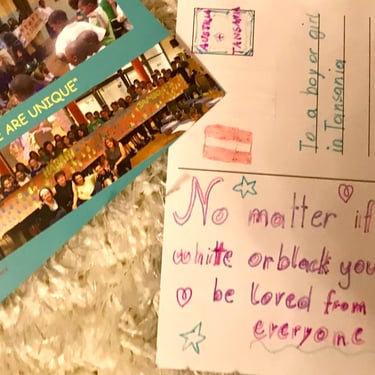 E ARE UNIQUE"
AUSTRIA
+
TANSANIA
To a boy or girl
in Tansania
No matter if
white or black you
be loved from
everyone